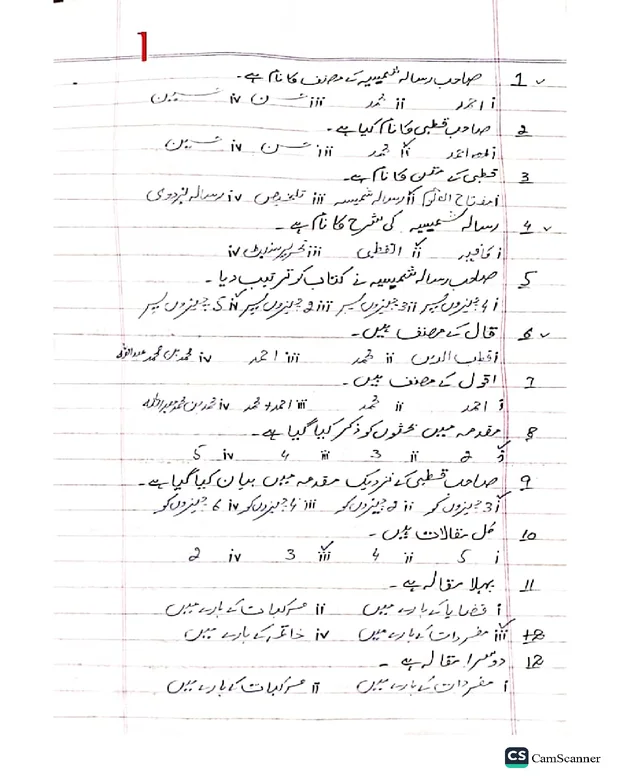 1
1 صاحب رسالہ شمسیہ کے مصنف کا نام ہے۔
i احمد ii محمد iii حسن iv حسین
2 صاحب قطبی کا نام کیا ہے۔
i احمد ii محمد iii حسن iv حسین
3 قطبی کے متن کا نام ہے۔
i مفتاح العلوم ii رسالہ شمسیہ iii تلخیص iv رسالہ
4 رسالہ شمسیہ کی شرح کا نام ہے۔
i ii القطبی iii iv
5 صاحب رسالہ شمسیہ نے کتاب کو ترتیب دیا۔
i 4 چیزوں پر ii 3 چیزوں پر iii 2 چیزوں پر iv 5 چیزوں پر
6 قال کے مصنف ہیں۔
i قطب الدین ii محمد iii احمد iv محمد بن محمد عبداللہ
7 اقول کے مصنف ہیں۔
i احمد ii محمد iii احمد محمد iv محمد بن محمد عبداللہ
8 مقدمہ میں بحثوں کو ذکر کیا گیا ہے۔
i 2 ii 3 iii 4 iv 5
9 صاحب قطبی کے نزدیک مقدمہ میں بیان کیا گیا ہے۔
i 3 چیزوں کو ii 2 چیزوں کو iii 4 چیزوں کو iv 6 چیزوں کو
10 کل مقالات ہیں۔
i 5 ii 4 iii 3 iv 2
11 پہلا مقالہ ہے۔
i قضایا کے بارے میں ii مرکبات کے بارے میں
iii مفردات کے بارے میں iv خاتمہ کے بارے میں
12 دوسرا مقالہ ہے۔
i مفردات کے بارے میں ii مرکبات کے بارے میں
CS CamScanner